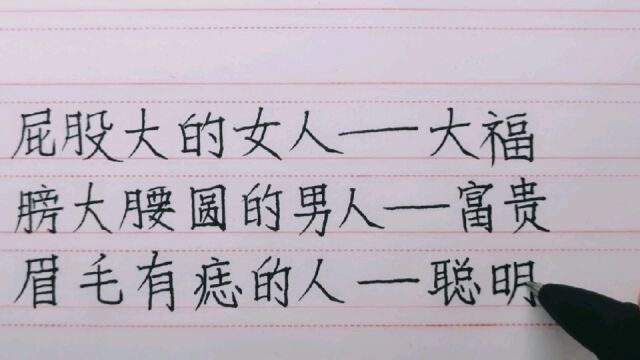 屁股大的女人——大福
膀大腰圆的男人——富贵
眉毛有痣的人——聪明